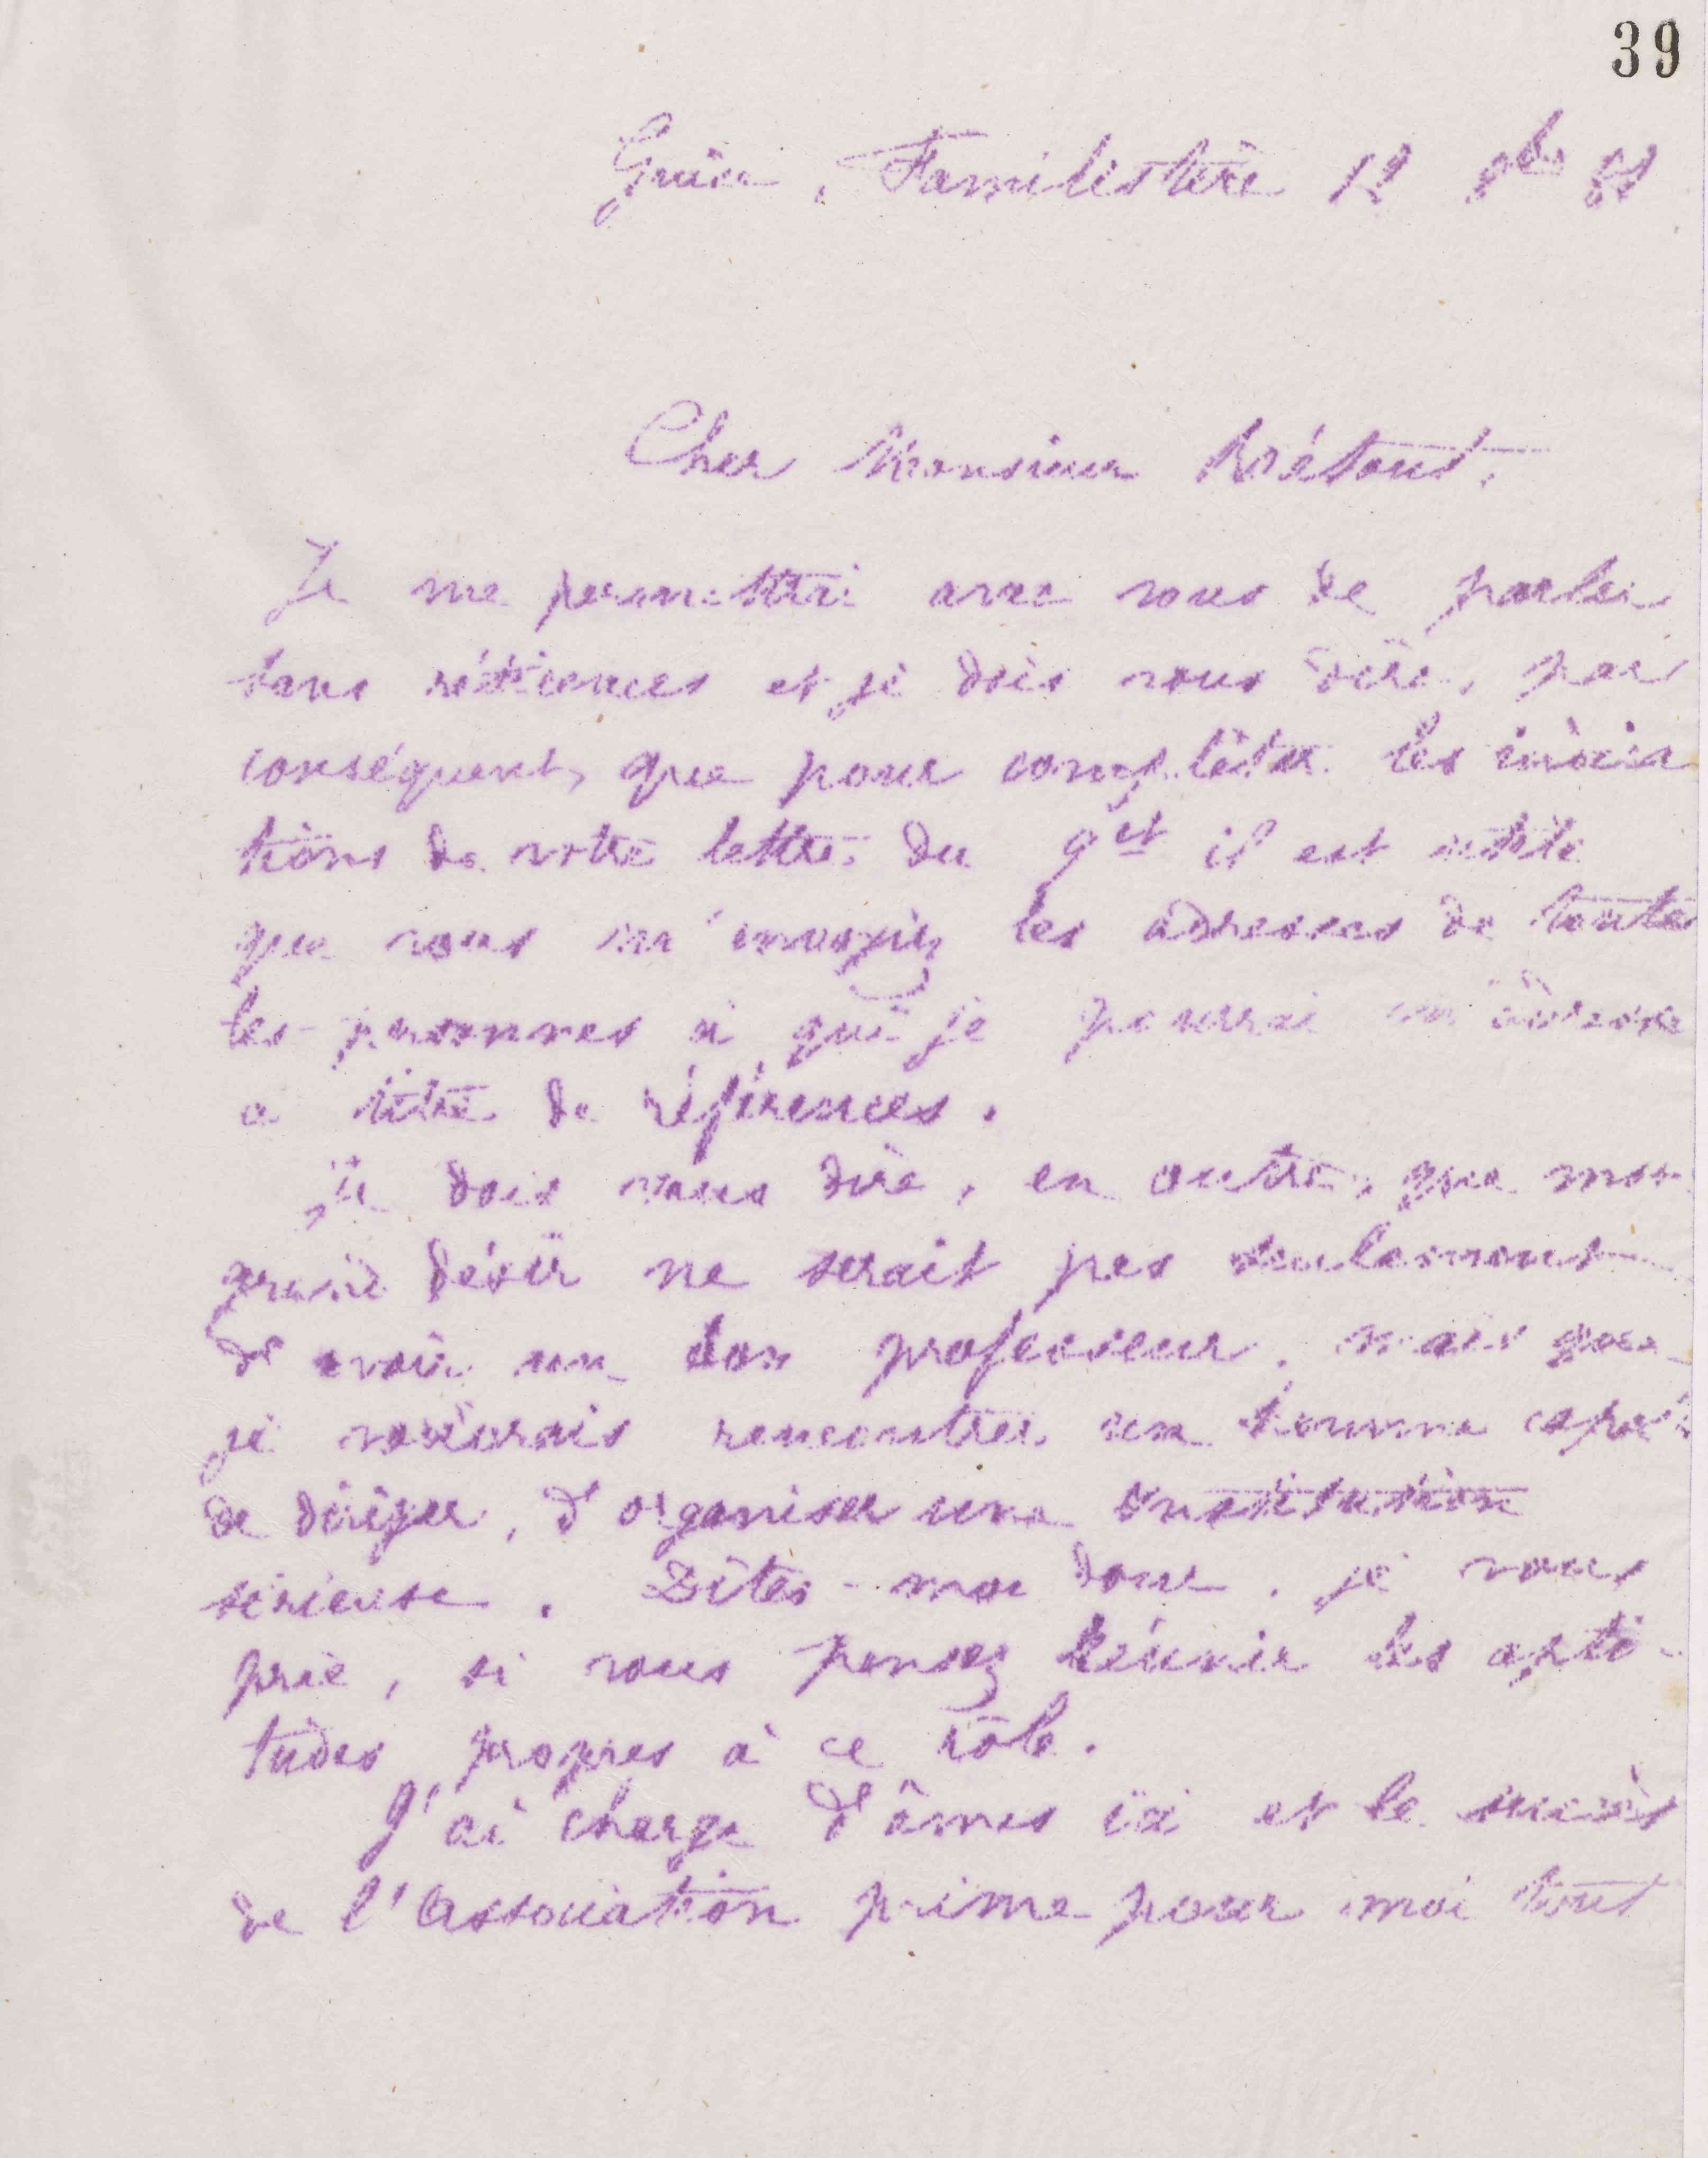 39
Guise, Familistère 12 9bre 88
Cher Monsieur Bétout,
Je me permettrai avec vous de parler
sans réticences et je dois vous dire, par
conséquent, que pour compléter les indica
tions de votre lettre du 9 ct il est utile
que vous m'envoyiez les adresses de toutes
les personnes à qui je pourrai m'adresser
a titre de références.
Je dois vous dire, en outre, que mon
grand désir ne serait pas seulement
d'avoir un bon professeur, mais que
je voudrais rencontrer un homme capable
de diriger, d'organiser une institution
sérieuse. Dîtes-moi donc, je vous
prie, si vous pensez réunir les apti-
tudes propres à ce rôle.
J'ai charge d'âmes ici et le succès
de l'association prime pour moi tout